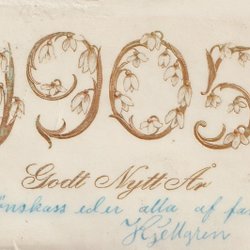 1905
Godt Nytt År
önskass eder alla af fa
Kjellgren